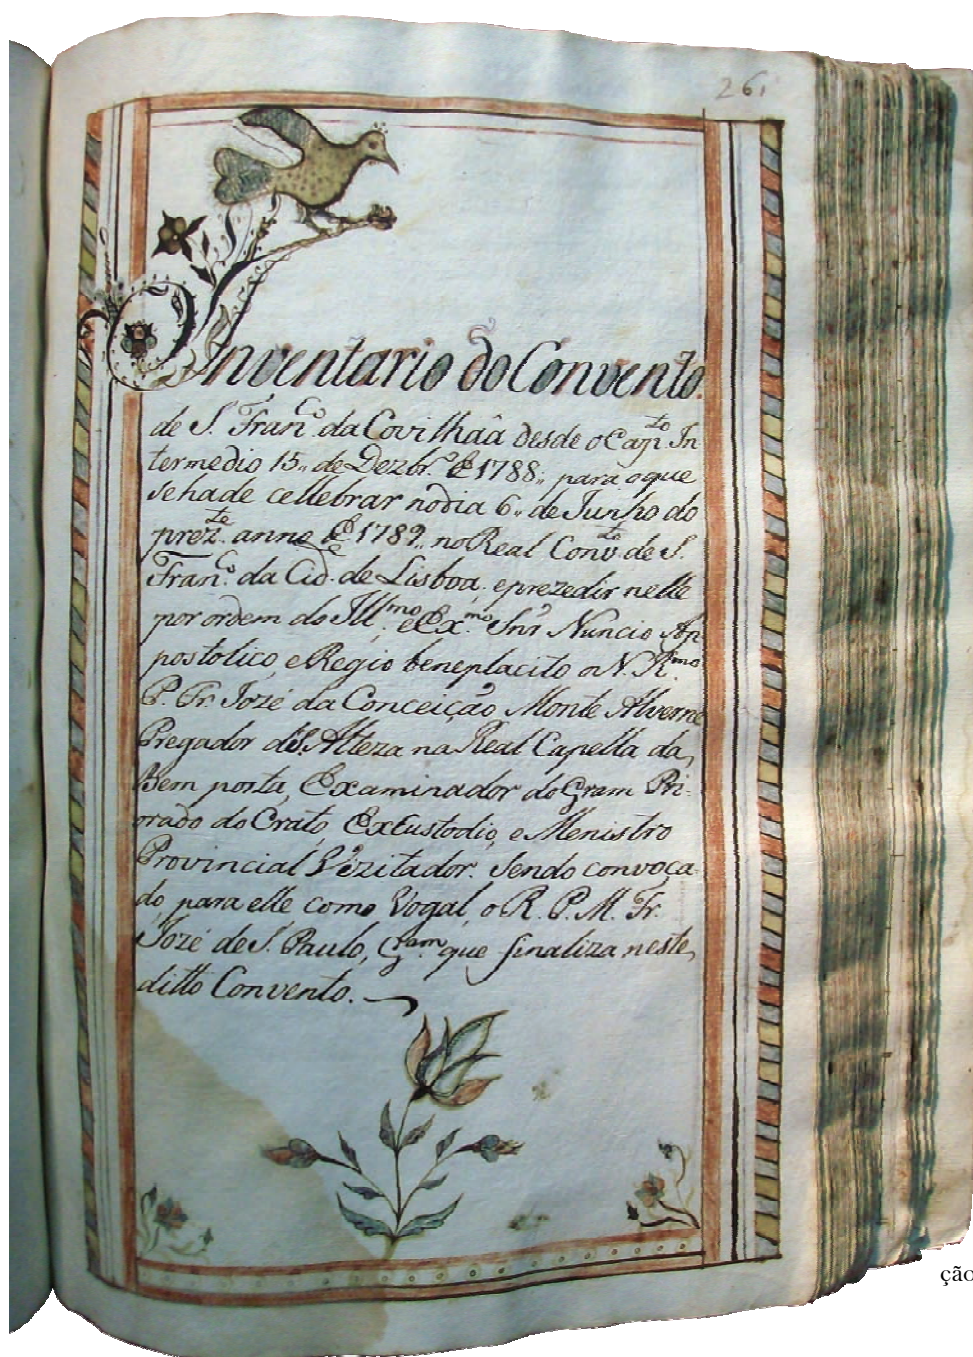 261
Inventario do Convento.
de S. Fran.co da Covilhaã desde o Cap.to In
termedio 15,, de Dezbr.o de 1788,, para o que
se hade cellebrar no dia 6,, de Junho do
prez.te anno de 1789,, no Real Conv.to de S.
Fran.co da Cid.e de Lisboa, e prezedir nelle
por ordem do Ill.mo e Ex.mo Snr Nuncio Ap
postolico, e Regio beneplacito o N. R.mo
P. Fr. Jozé da Conceição Monte Alverne
Pregador de S. Alteza na Real Capella da,
Bem posta, Examinador do Gram Pri-
orado do Crato, ExCustodio, e Menistro
Provincial Vezitador. Sendo convoca-
do, para elle como Vogal, o R. P. M. Fr.
Jozé de S. Paulo, G.ram que finaliza neste,
ditto Convento.
ção